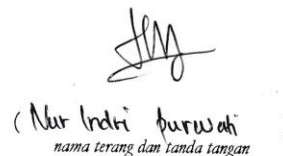 ( Nur Indri Purwati
nama terang dan tanda tangan